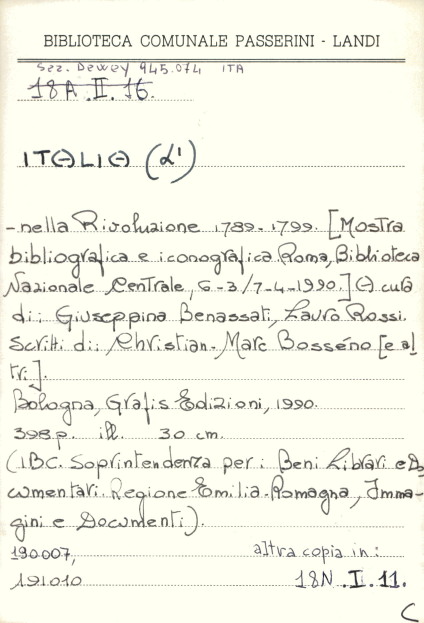 BIBLIOTECA COMUNALE PASSERINI - LANDI
Sez. Dewey 945.074 ITA
18A.II.16.
ITALIA (L')
- nella Rivoluzione 1789-1799. [Mostra
bibliografica e iconografica Roma, Biblioteca
Nazionale Centrale, 6-3/7-4-1990.] A cura
di: Giuseppina Benassati, Lauro Rossi.
Scritti di: Christian-Marc Bosséno [e al
tri].
Bologna, Grafis Edizioni, 1990.
398p. ill. 30 cm.
(IBC. Soprintendenza per i Beni Librari e Do
cumentari. Regione Emilia-Romagna, Imma-
gini e Documenti).
190.007, altra copia in:
191.010 18N.I.11.
C